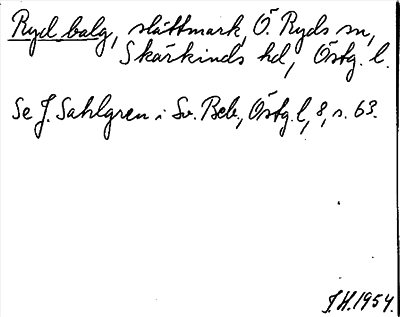 Ryd balg, slåttmark, Ö. Ryds sn,
Skärkinds hd, Östg. l.
Se J. Sahlgren i Sv. Beb., Östg. l, 8, s. 63.
J.H. 1954.